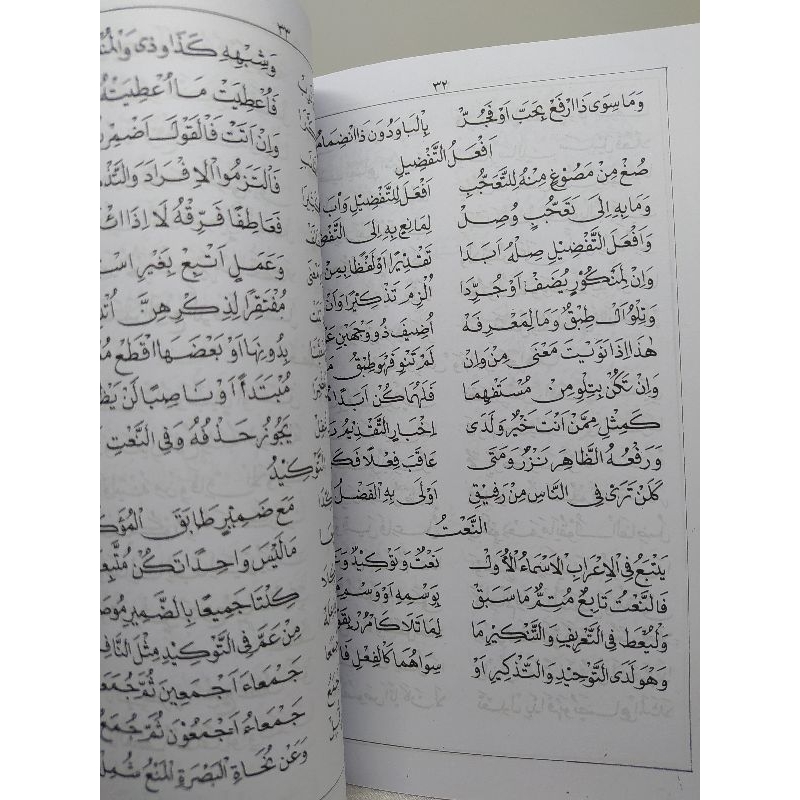 ٣٢
وَمَا سِوَى ذَا ارْفَعْ بِحَبَّ اَوْ فَجُرّْ بِالْبَا وَدُونَ ذَا انْضِمَامُ
اَفْعَلُ التَّفْضِيلِ
صُغْ مِنْ مَصُوْغٍ مِنْهُ لِلتَّعَجُّبِ اَفْعَلَ لِلتَّفْضِيْلِ وَأْبَ
وَمَا بِهِ اِلَى تَعَجُّبٍ وُصِلْ لِمَانِعٍ بِهِ اِلَى التَّفْضِ
وَاَفْعَلَ التَّفْضِيْلِ صِلْهُ اَبَدَا تَقْدِيْرًا اَوْ لَفْظًا بِمِنْ
وَاِنْ لِمَنْكُوْرٍ يُضَفْ اَوْ جُرِّدَا اُلْزِمَ تَذْكِيْرًا وَاَنْ
وَتِلْوُ اَلْ طِبْقٌ وَمَا لِمَعْرِفَهْ اُضِيْفَ ذُو وَجْهَيْنِ عَنْ
هٰذَا اِذَا نَوَيْتَ مَعْنَى مِنْ وَاِنْ لَمْ تَنْوِ فَهْوَ طِبْقُ
وَاِنْ تَكُنْ بِتِلْوِ مِنْ مُسْتَفْهِمَا فَلَهُمَا كُنْ اَبَدًا
كَمِثْلِ مِمَّنْ اَنْتَ خَيْرٌ وَلَدَى اِخْبَارٍ التَّقْدِيْمُ
وَرَفْعُهُ الظَّاهِرَ نَزْرٌ وَمَتَى عَاقَبَ فِعْلًا فَكَ
كَلَنْ تَرَى فِى النَّاسِ مِنْ رَفِيْقِ اَوْلَى بِهِ الْفَضْلُ
النَّعْتُ
يَتْبَعُ فِى الْاِعْرَابِ الْاَسْمَاءَ الْاُوَلْ نَعْتٌ وَتَوْكِيْدٌ وَعَ
فَالنَّعْتُ تَابِعٌ مُتِمٌّ مَا سَبَقْ بِوَسْمِهِ اَوْ وَسْمِ
وَلْيُعْطَ فِى التَّعْرِيْفِ وَالتَّنْكِيْرِ مَا لِمَا تَلَا كَامْرُرْ بِقَوْ
وَهْوَ لَدَى التَّوْحِيْدِ وَالتَّذْكِيْرِ اَوْ سِوَاهُمَا كَالْفِعْلِ فَا
٣٣
وَشِبْهِهِ كَذَا وَذِى وَالْمُنْ
فَاُعْطِيَتْ مَا اُعْطِيَتْهُ
وَاِنْ اَتَتْ فَالْقَوْلَ اَضْمِرْ
فَالْتَزَمُوا الْاِفْرَادَ وَالتَّذْ
فَعَاطِفًا فَرِّقْهُ لَا اِذَا ائْ
وَعَمَلٍ اَتْبِعْ بِغَيْرِ اسْ
مُفْتَقِرًا لِذِكْرِهِنَّ اُتْ
بِدُوْنِهَا اَوْ بَعْضَهَا اقْطَعْ مُ
مُبْتَدَأً اَوْ نَاصِبًا لَنْ يَظْ
يَجُوْزُ حَذْفُهُ وَفِى النَّعْتِ
التَّوْكِيْدُ
مَعَ ضَمِيْرٍ طَابَقَ الْمُؤَكَّ
مَا لَيْسَ وَاحِدًا تَكُنْ مُتَّبِعَ
كِلْتَا جَمِيْعًا بِالضَّمِيْرِ مُوْصَ
مِنْ عَمَّ فِى التَّوْكِيْدِ مِثْلَ النَّافِ
جَمْعَاءَ اَجْمَعِيْنَ ثُمَّ جُمَعَ
جَمْعَاءُ اَجْمَعُوْنَ ثُمَّ جُمَعُ
وَعَنْ نُحَاةِ الْبَصْرَةِ الْمَنْعُ شَمِلْ